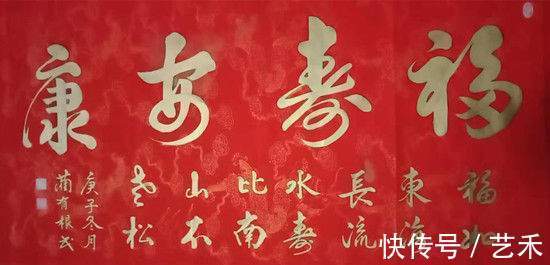 福寿安康
福如
東海
長流
水寿
比南
山不
老松
庚子冬月
蒲有根书
快传号 / 艺禾